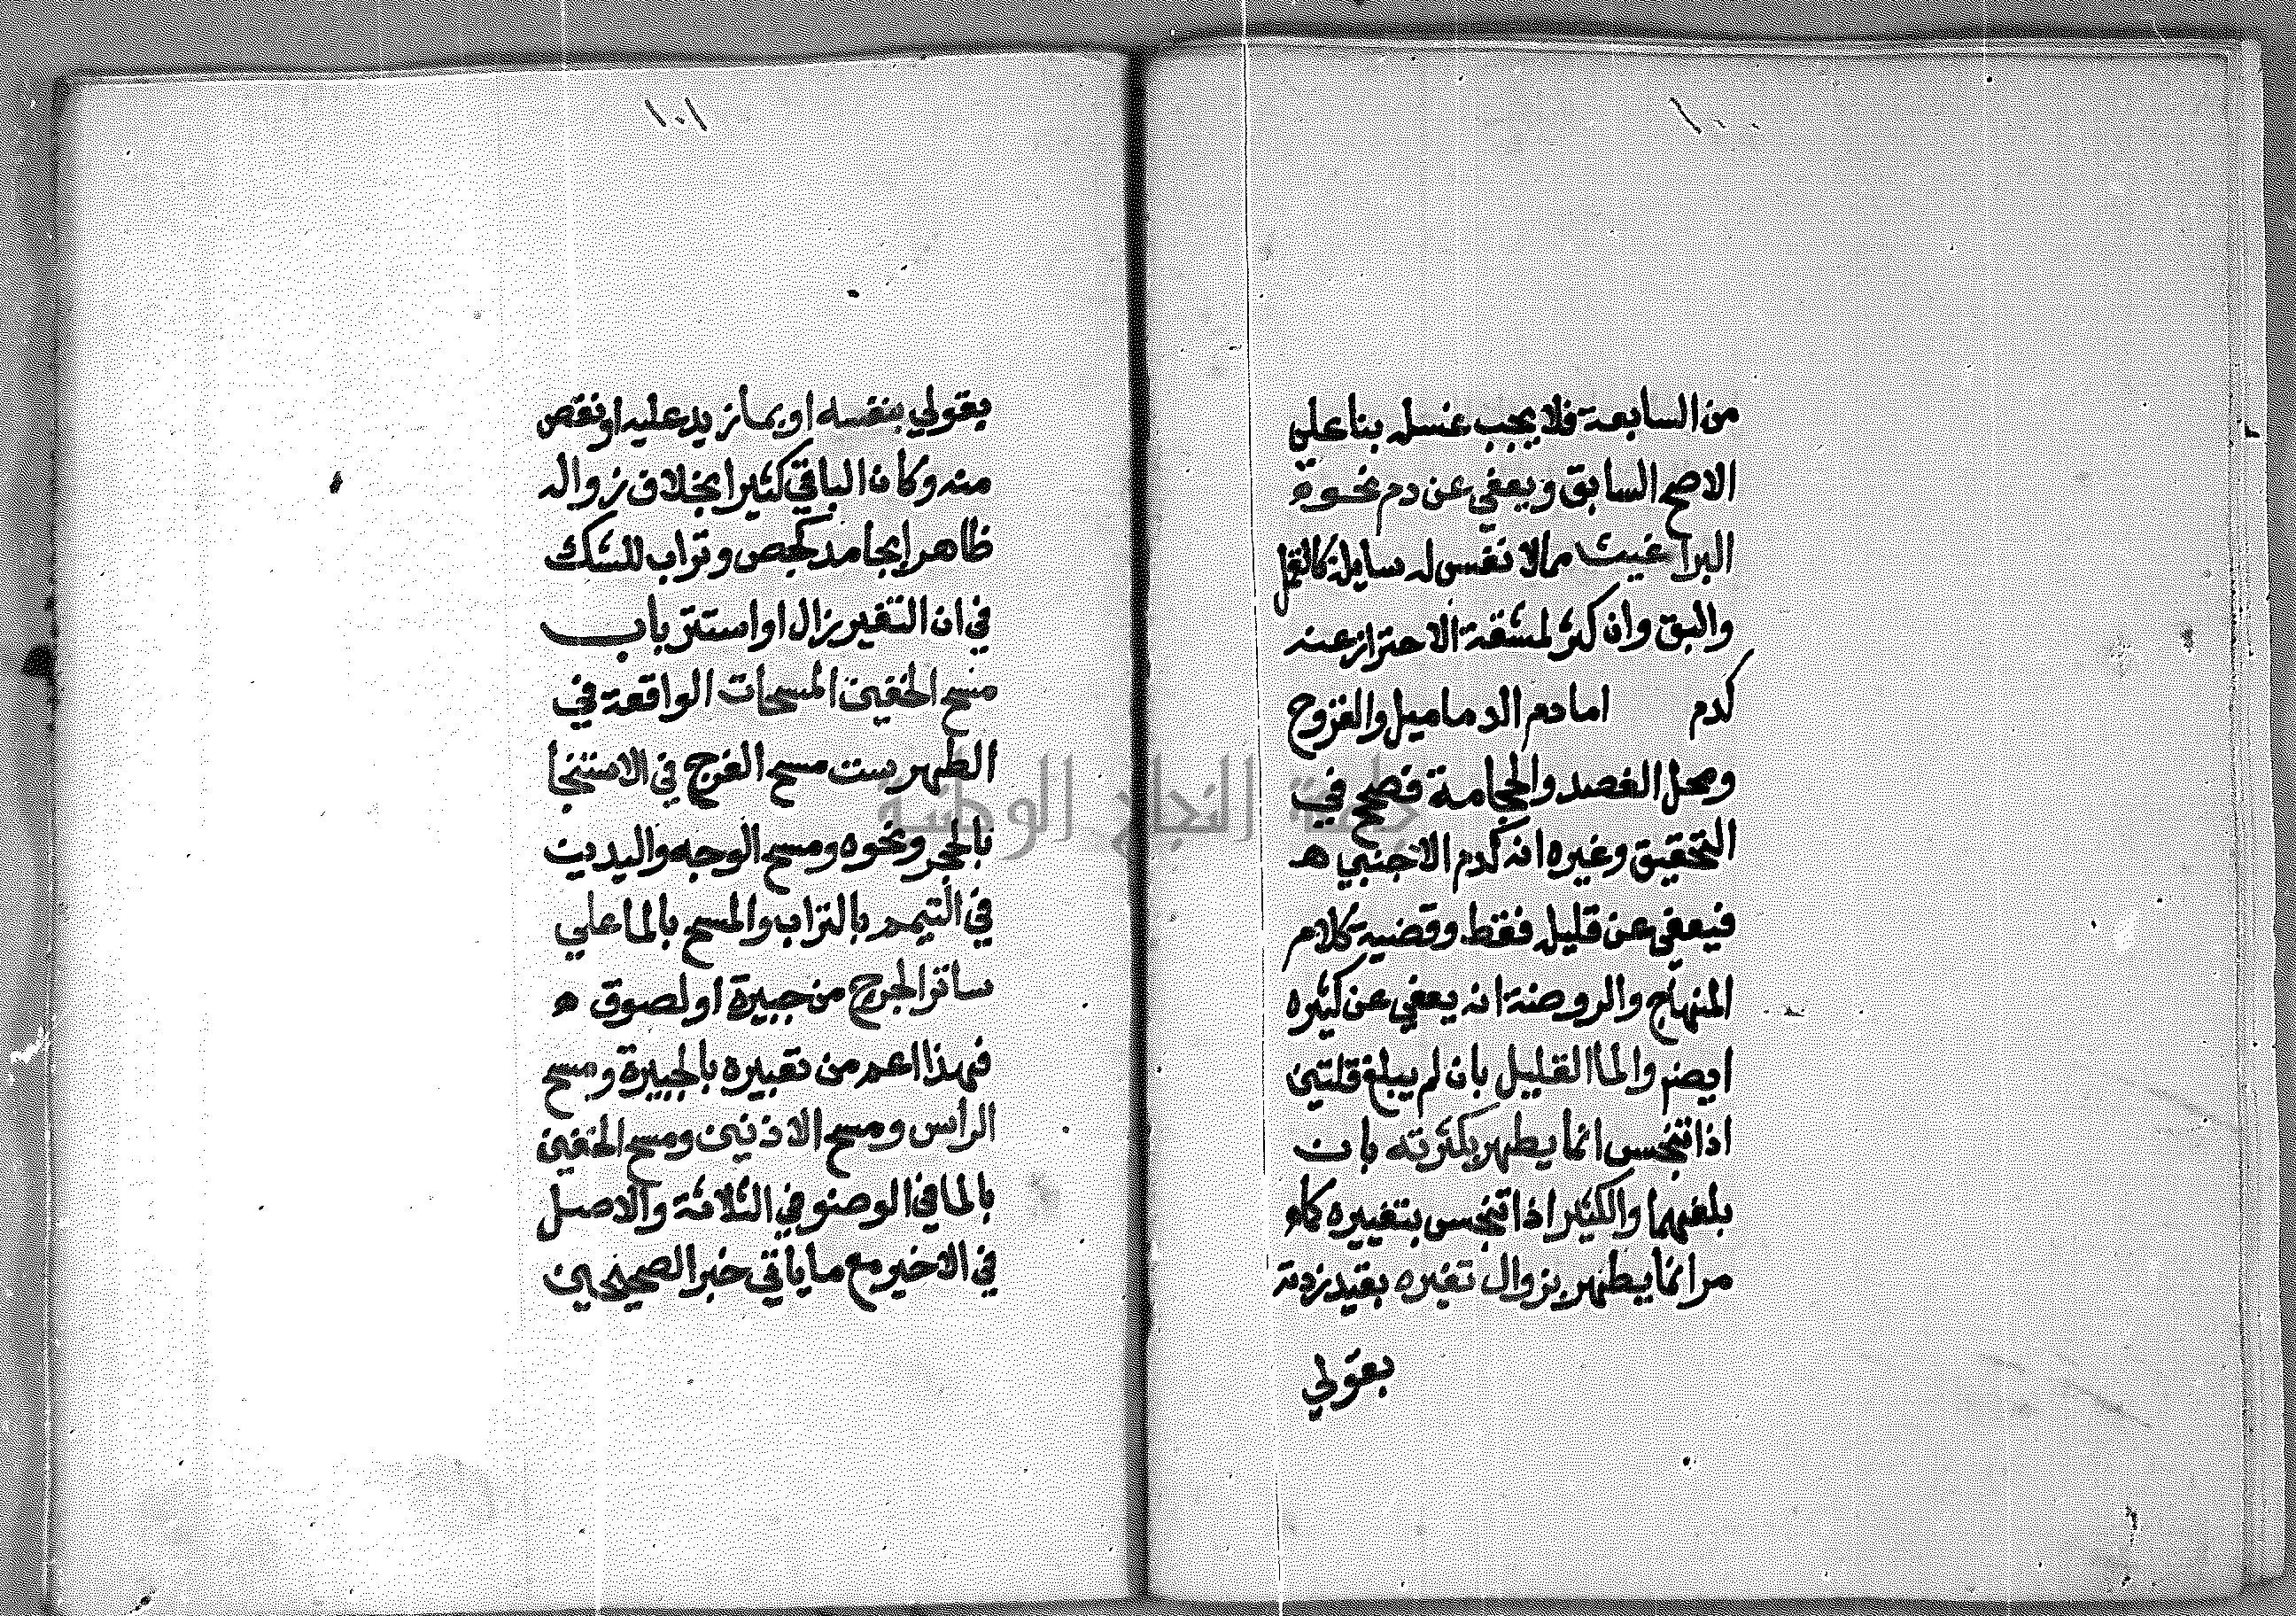 ١٠٠
من السابعة فلا يجب غسله بنا علي
الاصح السابق ويعفي عن دم نحو ه
البراغيث مما لا نفس له سايلة كالقمل
والبق وان كثر لمشقة الاحتراز عنه
كدم اما دم الدماميل والقروح
ومحل الفصد والحجامة فصحح في
التحقيق وغيره انه كدم الاجنبي ه
فيعفي عن قليله فقط وقضية كلام
المنهاج والروضة انه يعفي عن كثيره
ايضر والما القليل بان لم يبلغ قلتين
اذا تنجس انما يطهر بكثرته بان
بلغهما والكثير اذا تنجس بتغييره كما
مر انما يطهر بزوال تغيره بقيد زدته
بقولي
١٠١
بقولي بنفسه او بما زيد عليه او نقص
منه وكان الباقي كثيرا بخلاف زواله
ظاهرا بجامد كجص وتراب للشك
في ان التغير زال او استتر باب
مسح الخفين المسحات الواقعة في
الطهر ست مسح الفرج في الاستنجا
بالحجر ونحوه ومسح الوجه واليدين
في التيمم بالتراب والمسح بالما علي
ساتر الجرح من جبيرة او لصوق ه
فهذا اعم من تعبيره بالجبيرة ومسح
الراس ومسح الاذنين ومسح الخفين
بالما في الوضو في الثلاثة والاصل
في الاخير مع ما ياتي خبر الصحيحين
جامعة النجاح الوطنية